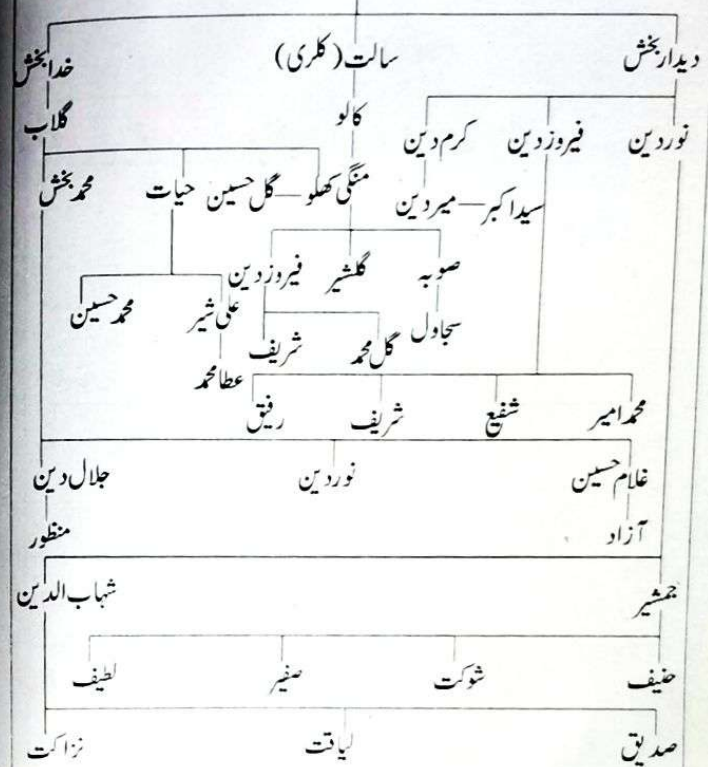 دیدار بخش سالت (کلری) خدا بخش
کالو گلاب
نور دین فیروز دین کرم دین
منگی کھلو — گل حسین حیات محمد بخش
سیداکبر — میر دین
صوبہ گلشیر فیروز دین
علی شیر محمد حسین
سجاول گل محمد شریف
عطا محمد
محمد امیر شفیع شریف رفیق
غلام حسین نور دین جلال دین
آزاد منظور
جمشیر شہاب الدین
حنیف شوکت صفیر لطیف
صدیق لیاقت نزاکت